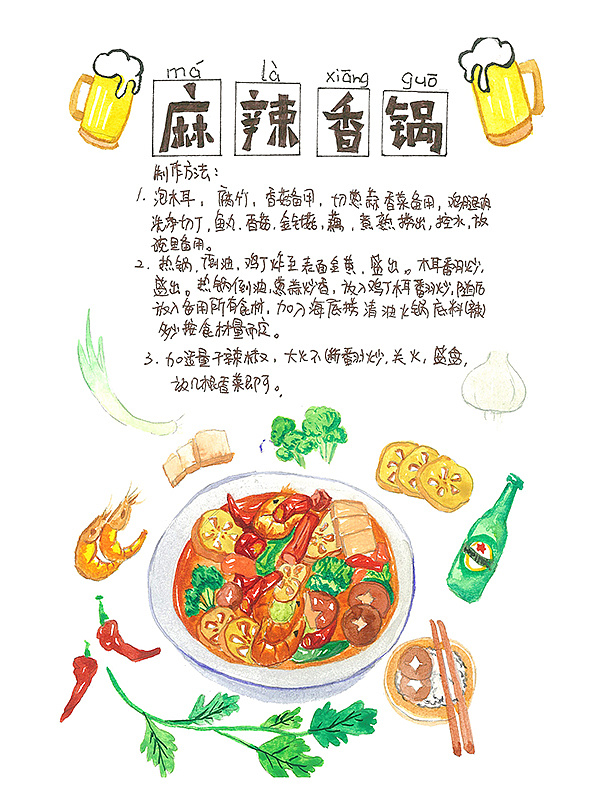 má là xiāng guō
麻辣香锅
制作方法：
1. 泡木耳，腐竹，香菇备用，切葱蒜香菜备用，鸡腿肉
洗净切丁，鱼丸，香菇，金针菇，藕，煮熟捞出，控水，放
碗里备用。
2. 热锅，倒油，鸡丁炸至表面金黄，盛出。木耳翻炒，
盛出。热锅倒油，葱蒜炒香，放入鸡丁木耳翻炒，随后
放入备用所有食材，加入海底捞清油火锅底料（辣）
多少按食材量而定。
3. 加适量干辣椒，大火不断翻炒，关火，盛盘，
放几根香菜即可。